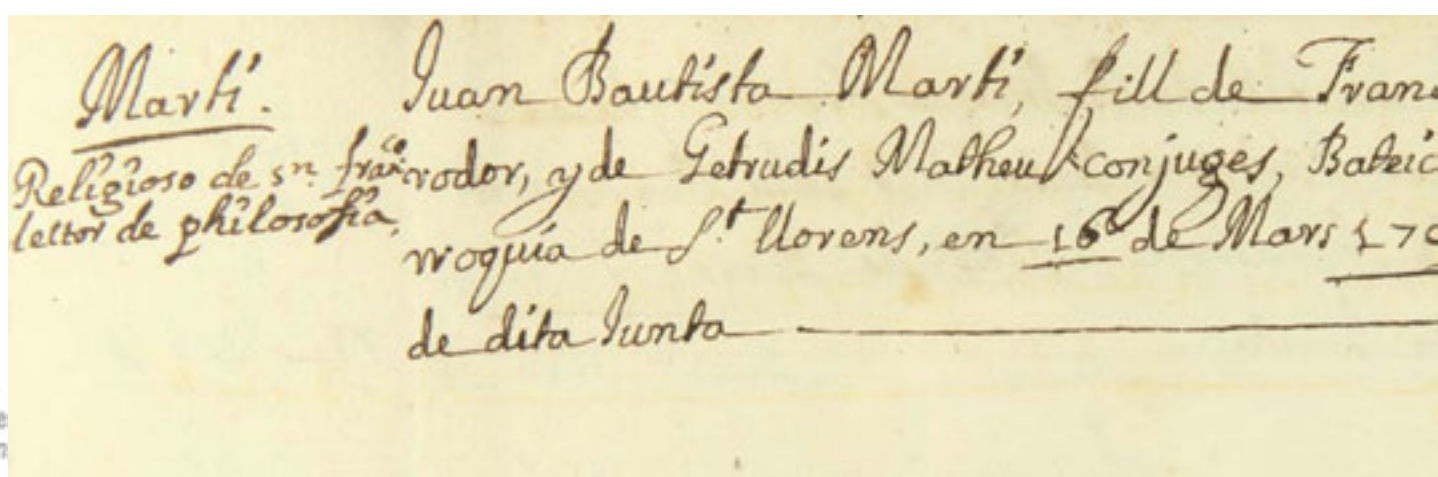 Marti.
Religioso de sn. franco.
lettor de philosofia,
Juan Bautista Marti, fill de Fran
rodor, y de Getrudis Matheu conjuges, Bateic
rroquia de St. llorens, en 16 de Mars 170
de dita Junta